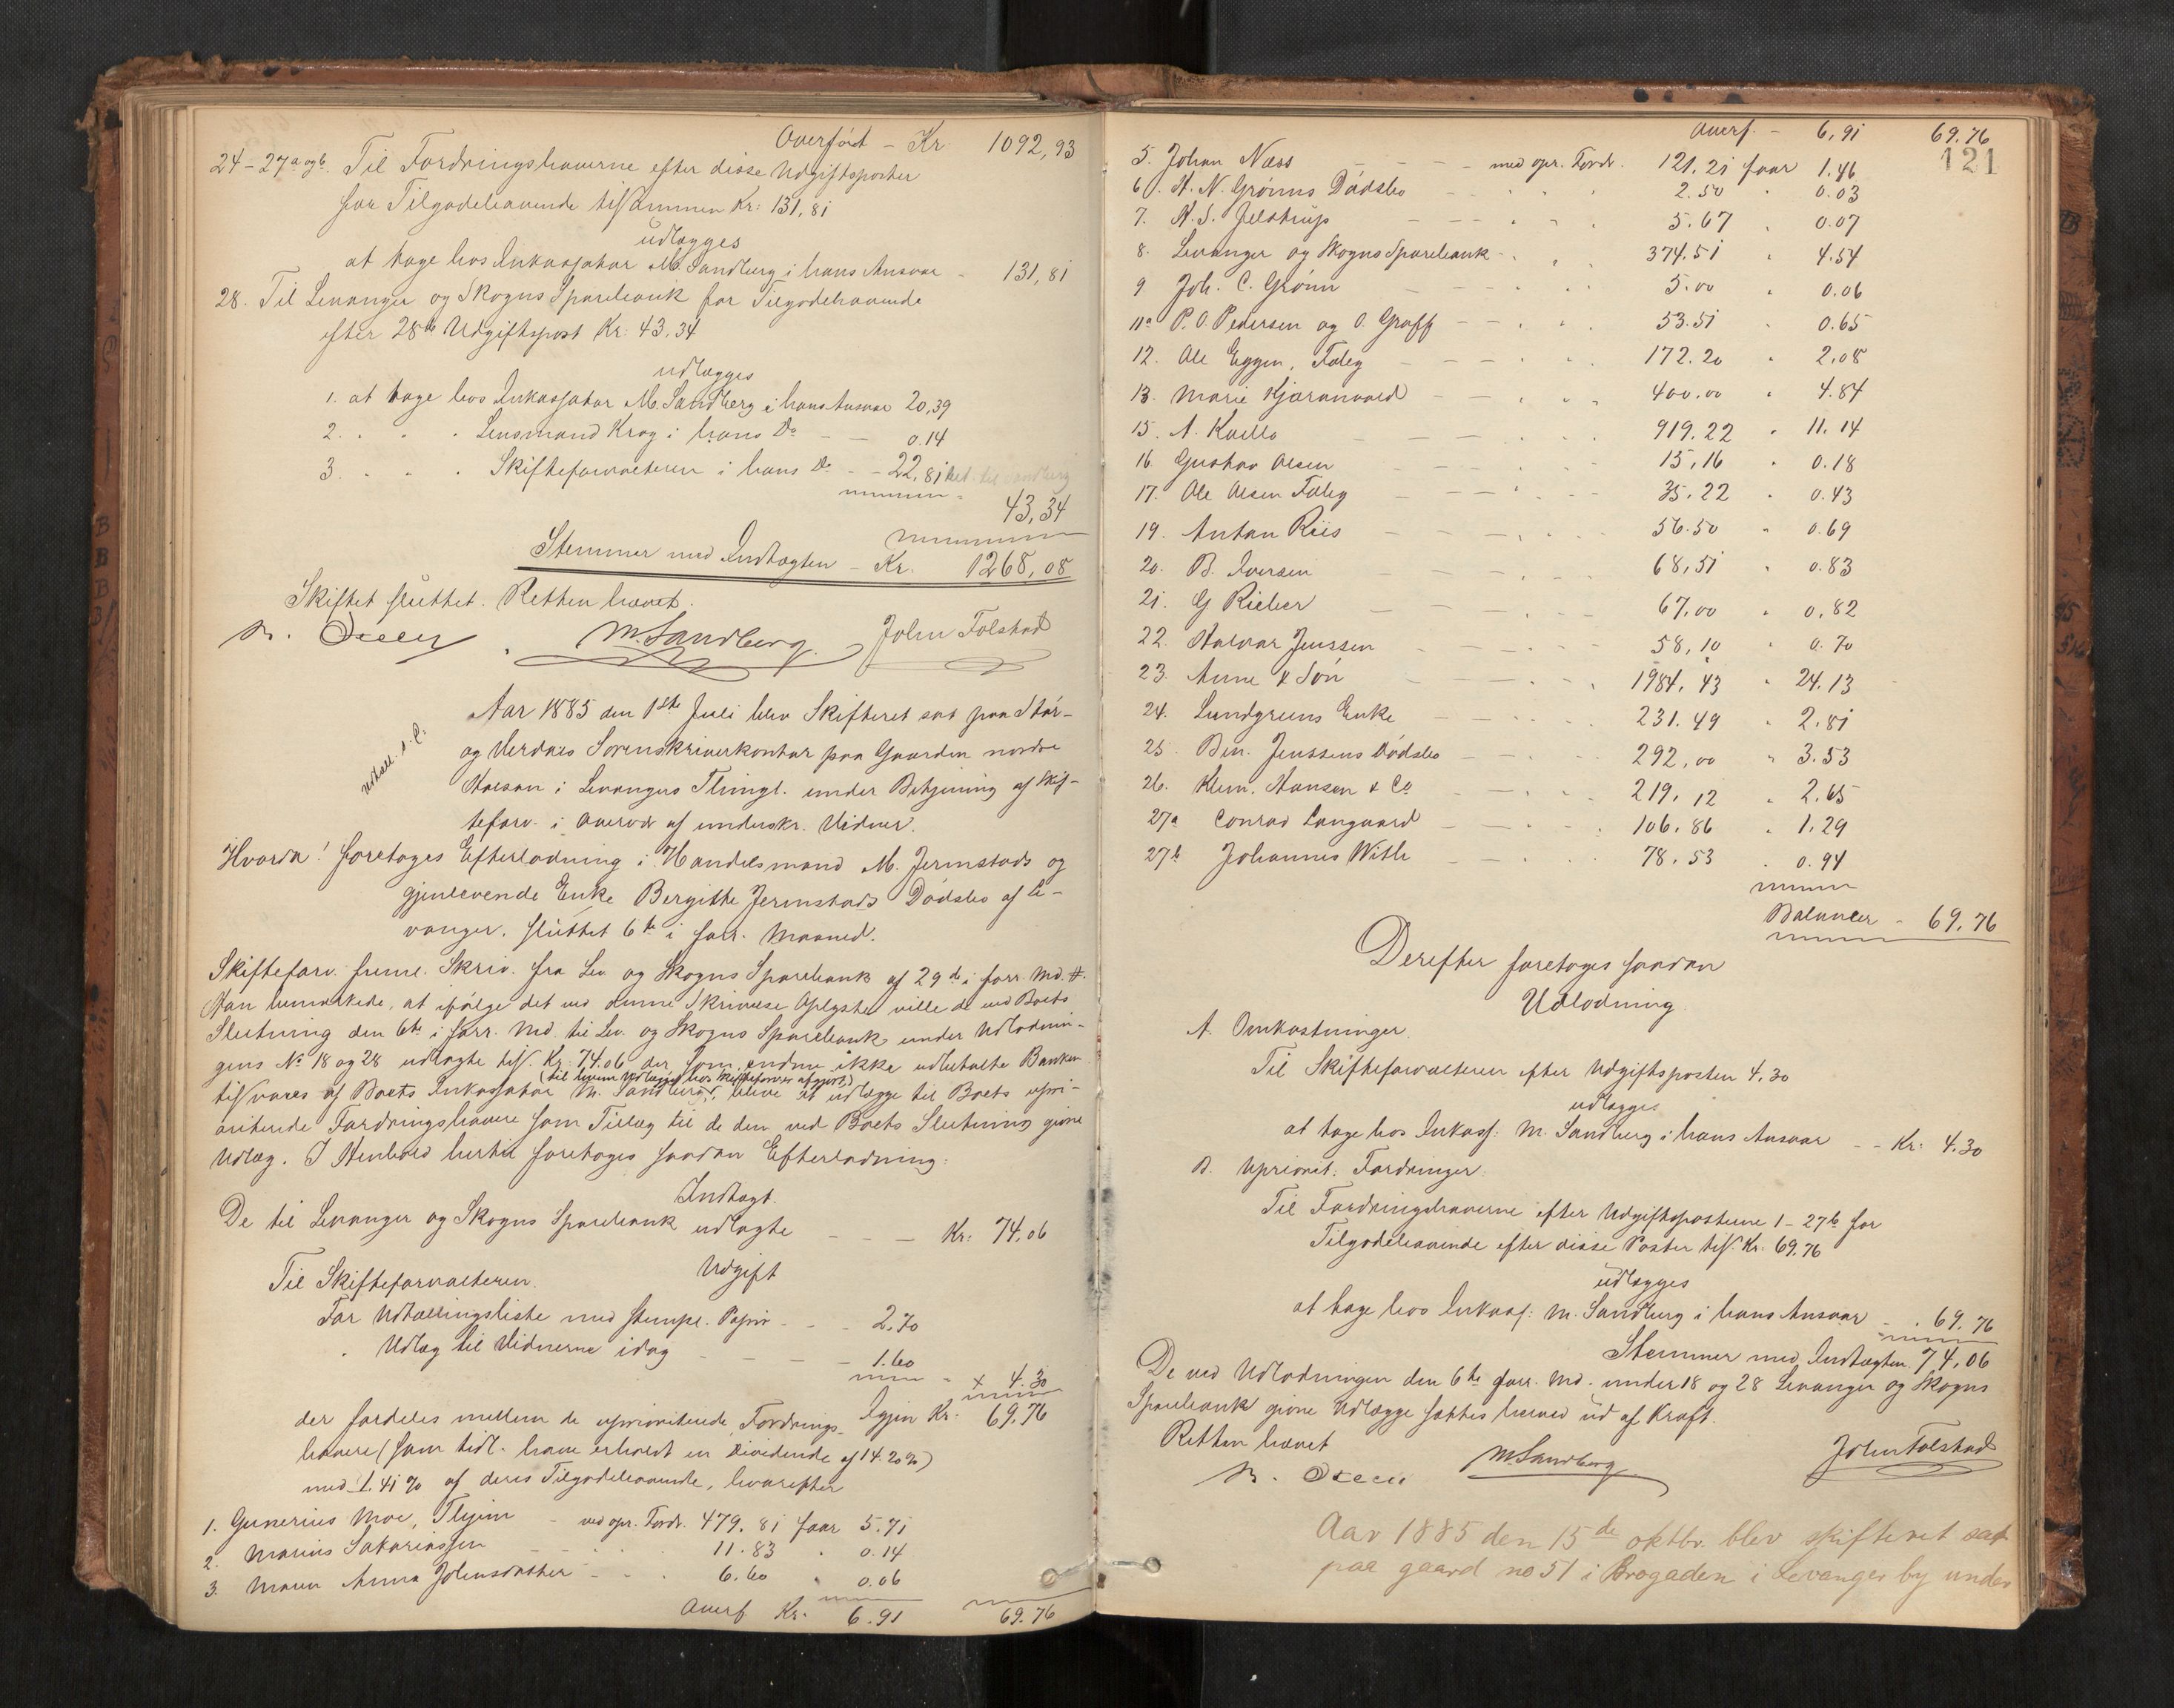 Overført - Kr 1092,93
24-27a og b. Til Fordringshaverne efter disse Udgiftsposter
for Tilgodehavende tilsammen Kr: 131,81
udlægges
at tage hos Inkassator M. Sandberg i hans Ansvar - 131,81
28. Til Levanger og Skogns Sparebank for Tilgodehavende
efter 28de Udgiftspost Kr: 43,34
udlægges
1. at tage hos Inkassator M. Sandberg i hans Ansvar 20,39
2. " " " Lensmand Krog i hans Do - - 0.14
3. " " " Skifteforvalteren i hans Do - - 22,81 bet. til Sandberg
43,34
Stemmer med Indtægten - Kr. 1268,08
Skiftet sluttet. Retten hævet.
M. Sandberg John Tolstad
Aar 1885 den 1ste Juli blev Skifteret sat paa Stør-
og Værdals Sorenskriverkontor paa Gaarden nordre
i Levangers Thingl. under Betjening af Skif-
teforv. i Overvær af underskr. Vidner.
Hvorda! foretoges Efterlodning i Handelsmand M. Jermstads og
gjenlevende Enke Bergitte Jermstads Dødsbo af Le-
vanger, sluttet 6te i forr. Maaned.
Skifteforv. freml. Skriv. fra Lev. og Skogns Sparebank af 29de i forr. Md. #.
Han bemærkede, at ifølge det ved denne Skrivelse Oplyste ville de ved Boets
Slutning den 6te i forr. Md. til Lev. og Skogns Sparebank under Udlodnin-
gens No 18 og 28 udlagte tils. Kr: 74.06 der, som endnu ikke udbetalte Banken
(til hvem Udlægget hos Skifteforv. er afgjort)
tilsvares af Boets Inkassator M. Sandberg, blive at udlægge til Boets upri-
oriterede Fordringshavere som Tillæg til de dem ved Boets Slutning gjorte
Udlæg. I Henhold hertil foretoges saadan Efterlodning:
Indtægt.
De til Levanger og Skogns Sparebank udlagte - - - Kr: 74.06
Udgift
Til Skifteforvalteren.
For Udtællingsliste med stempl. Papir - - - 2.70
" Udlæg til Vidnerne idag - - - - 1.60
+ 4.30
Igjen Kr: 69.76
der fordeles mellem de uprioriterede Fordrings-
havere (som tidl. have erholdt en Dividende af 14.20%)
med 1.41% af deres Tilgodehavende, hvorefter
1. Gunerius Moe, Thjem - ved opr. Fordr. 479.81 faar 5.71
2. Marius Sakariassen - - 11.83 " 0.14
3. Maren Anna Johnsdatter - - 6.60 " 0.06
Overf Kr. 6.91 69.76
Overf. - 6,91 69.76
121
5. Johan Næss - - - med opr. Fordr. 121.21 faar 1.46
6. H. N. Grønns Dødsbo - - 2.50 " 0.03
7. N. S. Jelstrup - - - 5.67 " 0.07
8. Levanger og Skogns Sparebank - 374.51 " 4.54
9 Joh. C. Grønn - - - 5.00 " 0.06
11a P. O. Pedersen og O. Graff - - 53.51 " 0.65
12. Ole Eggen, - - 172.20 " 2,08
13. Marie Kjæranvord - - 400.00 " 4.84
15. - - - 919.22 " 11.14
16. Gustav Olsen - - - 15,16 " 0.18
17. Ole Olsen - - - 35.22 " 0.43
19. Anton Riis - - - 56.50 " 0.69
20. B. Iversen - - - 68,51 " 0.83
21. G Rieber - - - 67.00 " 0,82
22. Halvor Jenssen - - - 58,10 " 0.70
23. Anne & Søn - - - 1984,43 " 24.13
24. Lundgrens Enke - - - 231.49 " 2.81
25. Ben. Jenssens Dødsbo - - 292,00 " 3.53
26. Klem. Hansen & Co - - 219,12 " 2.65
27a Conrad Langaard - - 106.86 " 1.29
27b Johannes With - - 78.53 " 0.94
Balancer - 69.76
Derefter foretoges saadan
Udlodning
A. Omkostninger.
Til Skifteforvalteren efter Udgiftsposten 4.30
udlægges
at tage hos Inkass: M. Sandberg i hans Ansvar - - Kr: 4.30
B. Upriorit. Fordringer.
Til Fordringshaverne efter Udgiftsposterne 1-27b for
Tilgodehavende efter disse Poster tils. Kr. 69.76
udlægges
at tage hos Inkass: M. Sandberg i hans Ansvar - " 69.76
Stemmer med Indtægten 74,06
De ved Udlodningen den 6te forr. Md. under 18 og 28 Levanger og Skogns
Sparebank gjorte Udlægge sættes herved ud af Kraft.
Retten hævet
M Sandberg John Tolstad
Aar 1885 den 15de oktbr. blev skifteret sat
paa gaard no 51 i Brogaden i Levanger by under